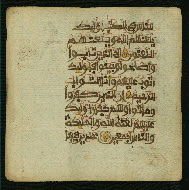 للناس في الكتب أوليك
يلعنهم الله ويلعنهم
اللعنون إلا الذين تابوا
وأصلحوا وبينوا فأوليك
أتوب عليهم وأنا التواب
الرحيم إن الذين كفروا
وماتوا وهم كفار أوليك
عليهم لعنة الله والمليكة
والناس أجمعين خلدين فيها